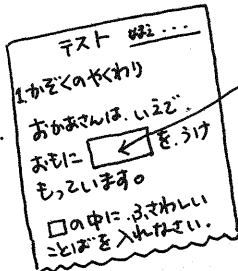 テスト なまえ...
1.かぞくのやくわり
おかあさんは、いえで、
おもに を、うけ
もっています。
□の中に、ふさわしい
ことばを入れなさい。